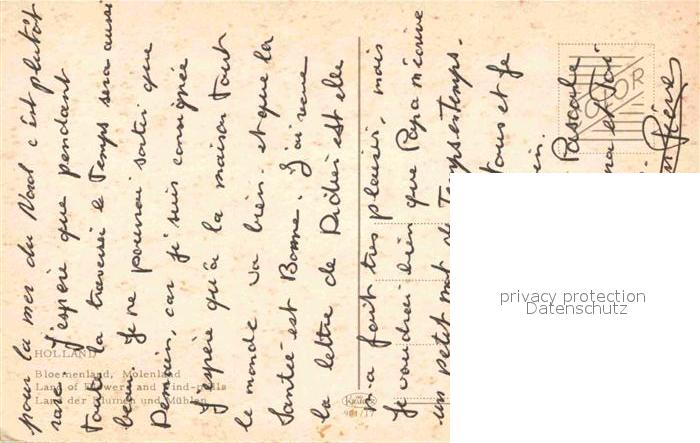 pour la mer du Nord c'est plutôt
rare. J'espère que pendant
toute la traversée le temps sera aussi
beau. Je ne pourrai sortir que
Demain, car je suis consignée
J'espère qu'à la maison tout
le monde va bien. et que la
Santée est Bonne. J'ai reçue
la lettre de Didier est elle
m'a fait très plaisir, mais
Je voudrai bien que Papa m'écrive
un petit mot de Temps en temps.
tous et Je
Pascale
et
Frère
HOLLAND
Bloemenland, Molenland
Land of Flowers and Wind-mills
Land der Blumen und Mühlen
KRÜGER
COLOR
privacy protection
Datenschutz